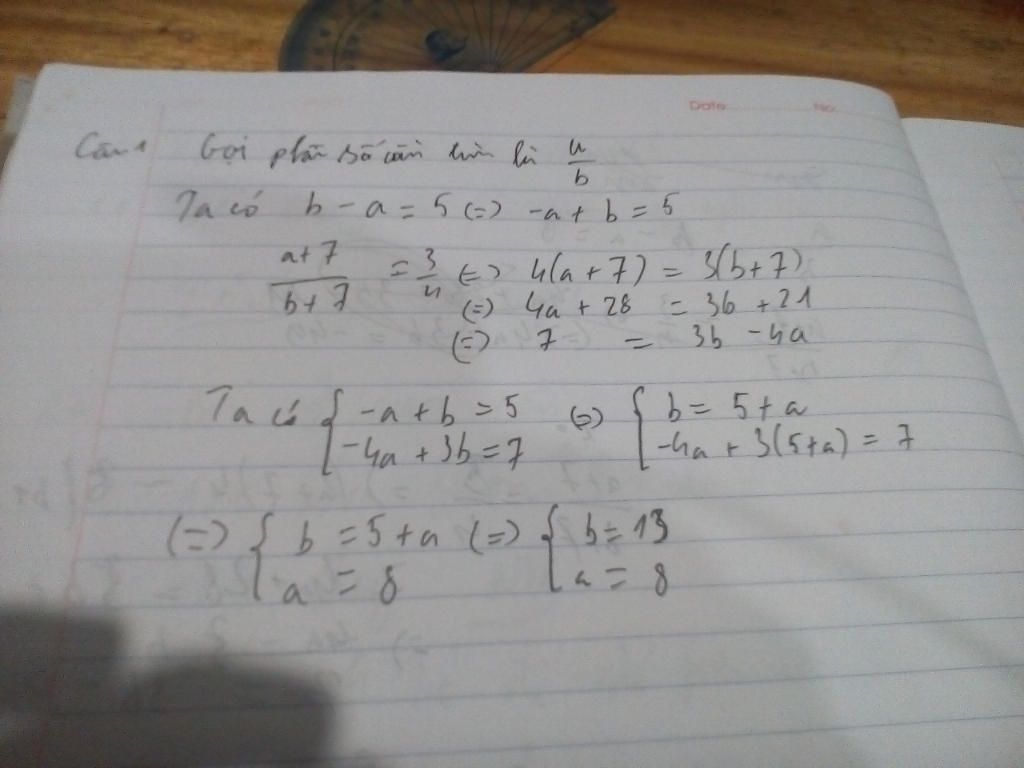 Date No.
Câu 1 Gọi phân số cần tìm là a/b
Ta có b - a = 5 (=) -a + b = 5
a+7/b+7 = 3/4 (=) 4(a + 7) = 3(b+7)
(=) 4a + 28 = 3b + 21
(=) 7 = 3b - 4a
Ta có { -a + b = 5 (=) { b = 5 + a
-4a + 3b = 7 -4a + 3(5+a) = 7
(=) { b = 5 + a (=) { b = 13
a = 8 a = 8